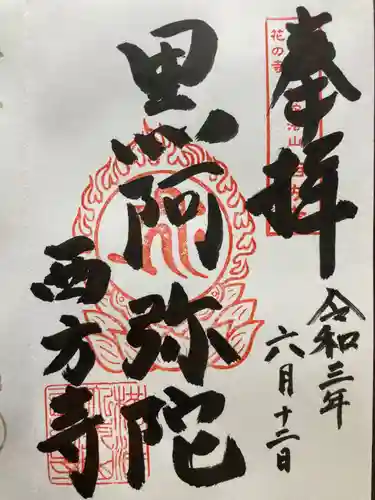 花の寺
奉拝
令和三年
六月十二日
黒阿弥陀
西方寺